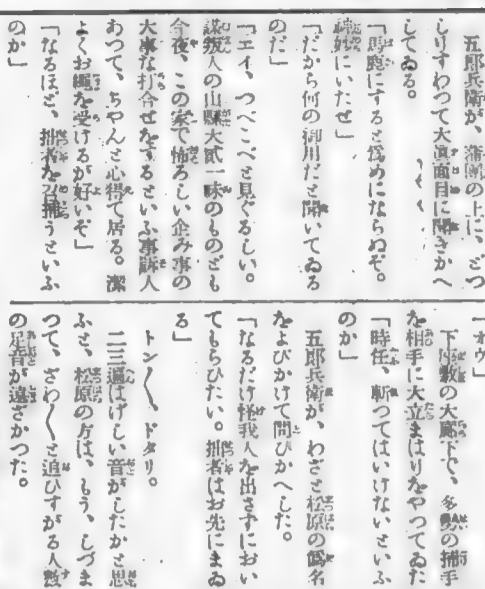 五郎兵衛が、蒲團の上に、どつ
しりすわつて大眞面目に聞きかへ
してゐる。
「馬鹿にすると爲めにならぬぞ。
神妙にいたせ」
「だから何の御用だと聞いてゐる
のだ」
「エイ、つべこべと見ぐるしい。
謀叛人の山縣大貳一味のものども
今夜、この家で怖ろしい企み事の
大事な打合せをするといふ事訴人
あつて、ちやんと心得て居る。潔
よくお繩を受けるが好いぞ」
「なるほど、拙者を召捕うといふ
のか」
「オウ」
下座敷の大廊下で、多勢の捕手
を相手に大立まはりをやつてゐた
「時任、斬つてはいけないといふ
のか」
五郎兵衛が、わざと松原の僞名
をよびかけて問ひかへした。
「なるだけ怪我人を出さずにおい
てもらひたい。拙者はお先にまゐ
る」
トン〱、ドタリ。
二三遍はげしい音がしたかと思
ふと、松原の方は、もう、しづま
つて、ざわ〱と追ひすがる人數
の足音が遠ざかつた。